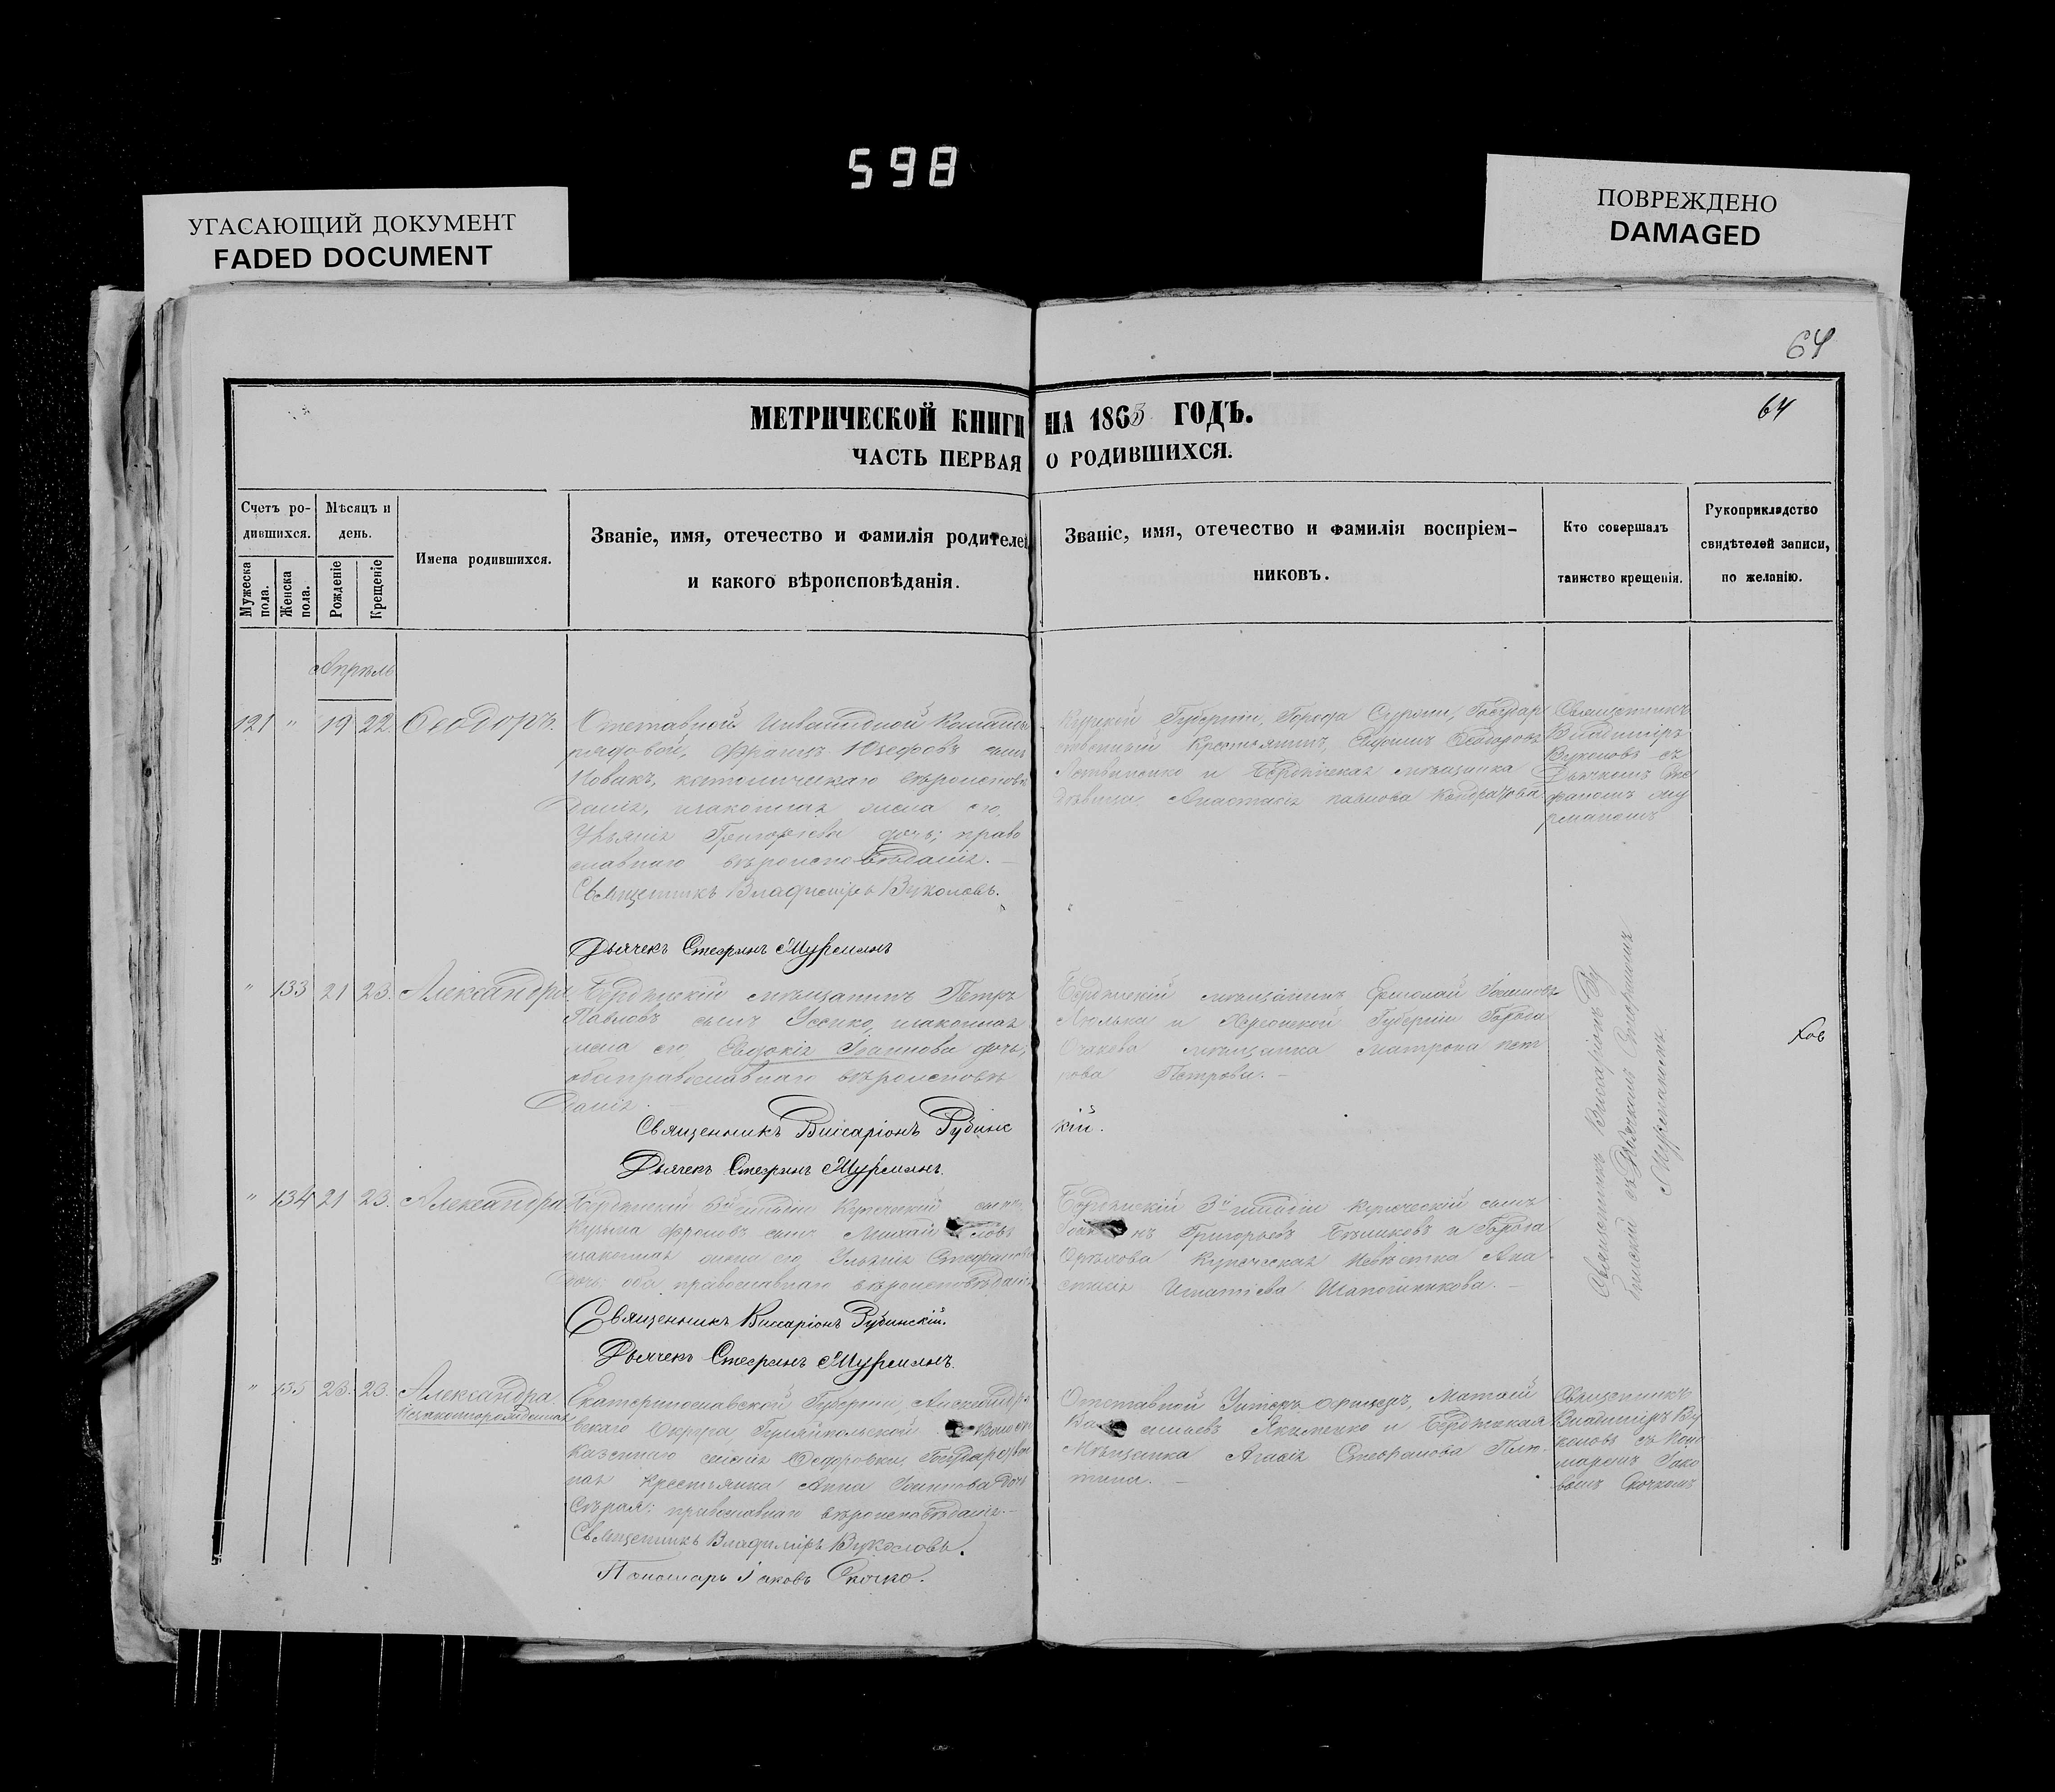 598
УГАСАЮЩИЙ ДОКУМЕНТ
FADED DOCUMENT
ПОВРЕЖДЕНО
DAMAGED
64
64
МЕТРИЧЕСКОЙ КНИГИ НА 1863 ГОДЪ.
ЧАСТЬ ПЕРВАЯ О РОДИВШИХСЯ.
Счетъ ро-
дившихся.
Мужеска пола.
Женска пола.
Мѣсяцъ и
день.
Рожденіе
Крещеніе
Имена родившихся.
Званіе, имя, отечество и фамилія родителей
и какого вѣроисповѣданія.
Званіе, имя, отечество и фамилія воспріем-
никовъ.
Кто совершалъ
таинство крещенія.
Рукоприкладство
свидѣтелей записи,
по желанію.
Апрѣль
121 " 19 22 Ѳеодоръ.
Отставной Инвалидной Команды
рядовой, Францъ Юзефовъ сынъ
Новакъ, католическаго вѣроисповѣ
данія, законная жена его,
Ульянія Григорьева дочь; право
славнаго вѣроисповѣданія. —
Священникъ Владиміръ Вуколовъ.
Дьячекъ Стефанъ Мурманъ
Курской Губерніи, Города Суджи, Государ
ственный Крестьянинъ, Ѳеодоровъ
Литвиненко и Бердянская мѣщанка
дѣвица, Анастасія Павлова Кондратова
Священникъ
Владиміръ
Вуколовъ съ
Дьячкомъ Сте
фаномъ Му
рманомъ
" 133 21 23. Александра
Бердянскій мѣщанинъ Петръ
Павловъ сынъ Усенко, законная
жена его Евдокія Іоаннова дочь,
оба православнаго вѣроисповѣ
данія. —
Священникъ Виссаріонъ Рубинс
кій.
Дьячекъ Стефанъ Мурманъ.
Бердянскій мѣщанинъ Ермолай Іоанновъ
Люлька и Херсонской Губерніи Города
Очакова мѣщанка Матрона
Петрова. —
Священникъ Виссаріонъ Ру
бинскій съ Дьячкомъ Стефаномъ
Мурманомъ.
" 134 21 23. Александра
Бердянскій 3й гильдіи Купеческій сынъ
Кузьма Фроловъ сынъ Михай ловъ
законная жена его Ульянія Стефанова
дочь: оба православнаго вѣроисповѣданія
Священникъ Виссаріонъ Рубинскій.
Дьячекъ Стефанъ Мурманъ.
Бердянскій 3й гильдіи купеческій сынъ
Григорьевъ Бѣликовъ и Города
Орѣхова Купеческая Невѣстка Ана
стасія Игнатіева Шапошникова. —
" 135 23. 23. Александра
Незаконнорожденная
Екатеринославской Губерніи, Александро
вскаго Округа
Казеннаго селенія Ѳедоровки, Государствен
ная Крестьянка Анна Іоаннова дочь
Сѣрая: православнаго вѣроисповѣданія. —
Священникъ Владиміръ Вуколовъ.
Пономарь Іаковъ Скочко.
Отставной Унтеръ-офицеръ, Матѳей
Якименко и Бердянская
Мѣщанка Агаѳія Стефанова
Священникъ
Владиміръ Ву
коловъ съ Поно
маремъ Іако
вомъ Скочкомъ